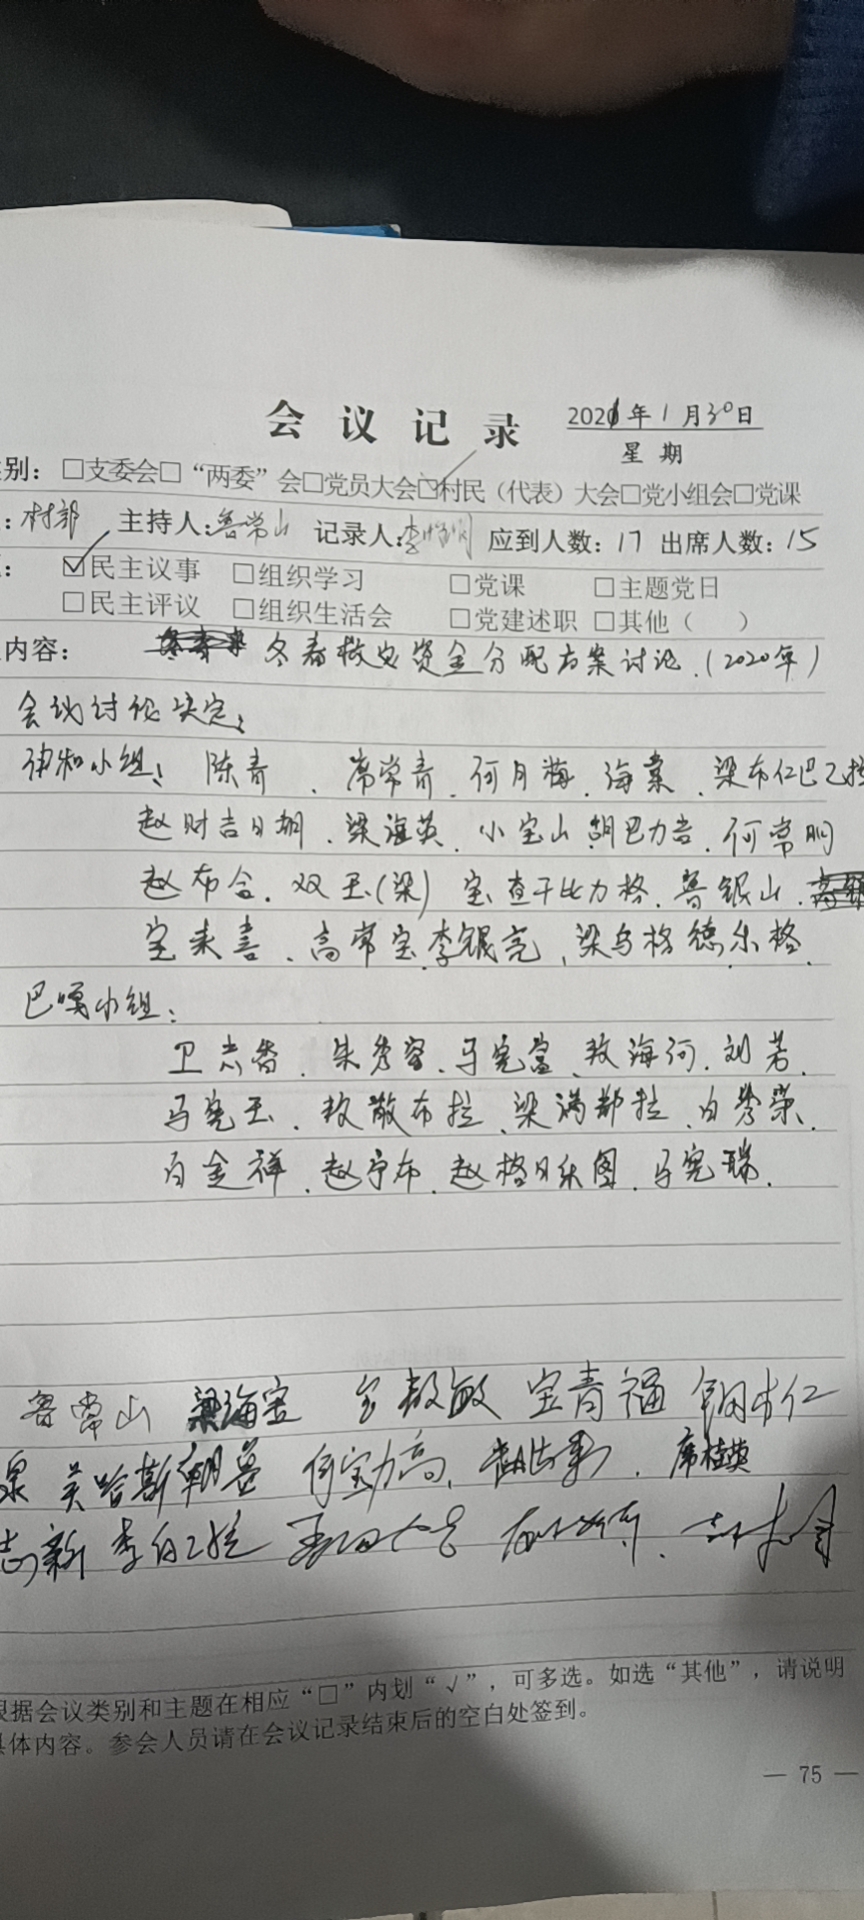 会议记录 2021年1月30日
星期
别：□支委会□“两委”会□党员大会☑村民（代表）大会□党小组会□党课
：村部 主持人：鲁常山 记录人：李 应到人数：17 出席人数：15
：☑民主议事 □组织学习 □党课 □主题党日
□民主评议 □组织生活会 □党建述职 □其他（ ）
内容： 冬春救灾资金分配方案讨论.(2020年)
会议讨论决定：
小组： 陈青、席常青.何月梅.海棠.梁布仁巴乙拉
赵财吉日胡.梁海英.小宝山.胡巴力吉.何常明
赵布合.双玉(梁) 宝查干比力格.鲁银山.
宝来喜.高常宝.李银亮.梁乌格德乐格.
巴嘎小组：
卫志香.朱秀容.马宪富.敖海河.刘芳.
马宪玉.敖散布拉.梁满都拉.白秀荣.
白金祥.赵宁布.赵格日乐图.马宪瑞.
鲁常山 梁海宝 敖敏 宝青福 布仁
泉 吴哈斯朝鲁 何宝力高. 席桂英
志新 李白乙拉
根据会议类别和主题在相应“□”内划“√”，可多选。如选“其他”，请说明
具体内容。参会人员请在会议记录结束后的空白处签到。
— 75 —